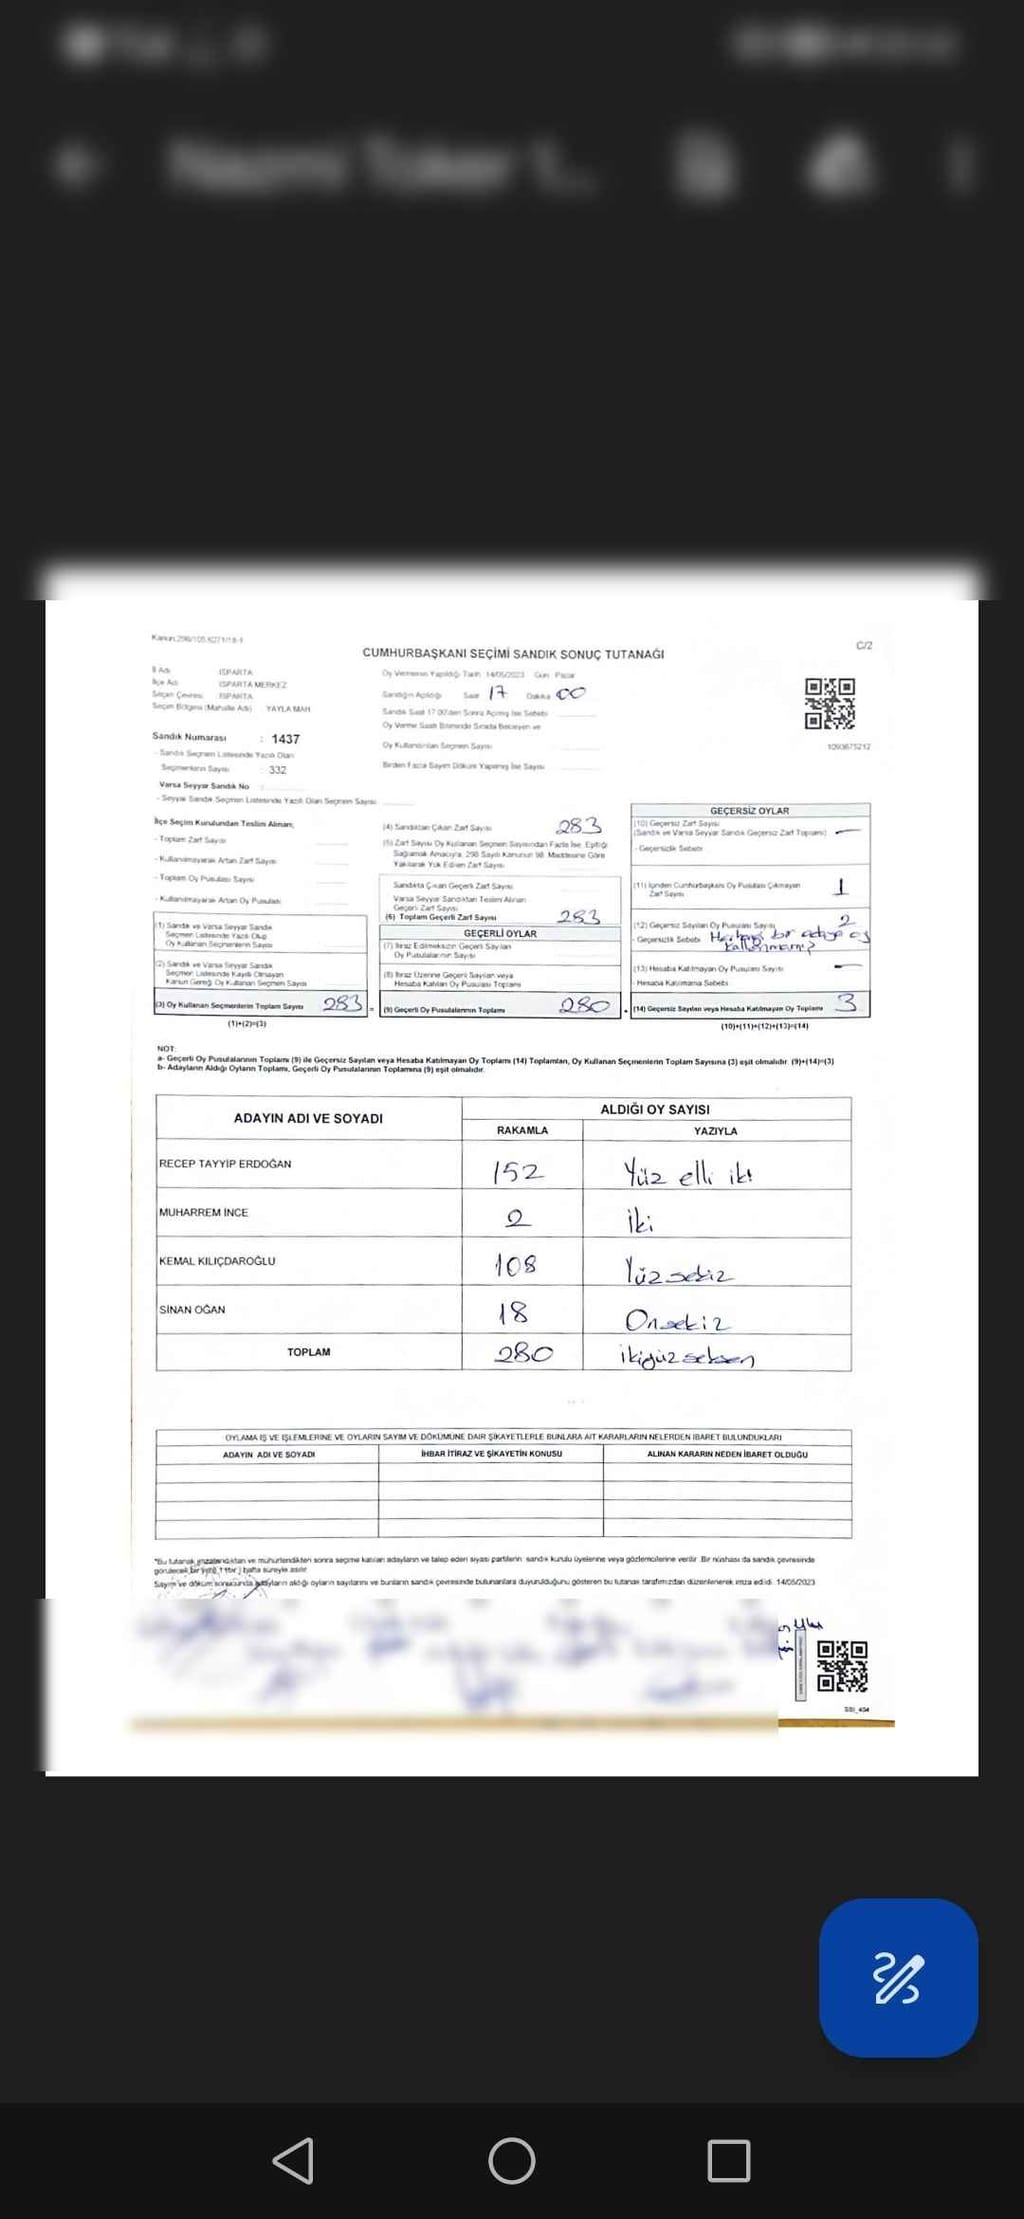 Kanun.298/105,6271/18-I
C/2
CUMHURBAŞKANI SEÇİMİ SANDIK SONUÇ TUTANAĞI
İl Adı ISPARTA
İlçe Adı ISPARTA MERKEZ
Seçim Çevresi ISPARTA
Seçim Bölgesi (Mahalle Adı) YAYLA MAH
Sandık Numarası : 1437
- Sandık Seçmen Listesinde Yazılı Olan
Seçmenlerin Sayısı : 332
Varsa Seyyar Sandık No :
- Seyyar Sandık Seçmen Listesinde Yazılı Olan Seçmen Sayısı
Oy Vermenin Yapıldığı Tarih 14/05/2023 Gün Pazar
Sandığın Açıldığı Saat 17 Dakika 00
Sandık Saat 17.00'den Sonra Açılmış İse Sebebi
Oy Verme Saati Bitiminde Sırada Bekleyen ve
Oy Kullandırılan Seçmen Sayısı
Birden Fazla Sayım Döküm Yapılmış İse Sayısı
1093675212
İlçe Seçim Kurulundan Teslim Alınan;
- Toplam Zarf Sayısı
- Kullanılmayarak Artan Zarf Sayısı
- Toplam Oy Pusulası Sayısı
- Kullanılmayarak Artan Oy Pusulası
(1) Sandık ve Varsa Seyyar Sandık
Seçmen Listesinde Yazılı Olup
Oy Kullanan Seçmenlerin Sayısı
(2) Sandık ve Varsa Seyyar Sandık
Seçmen Listesinde Kayıtlı Olmayan
Kanun Gereği Oy Kullanan Seçmen Sayısı
(3) Oy Kullanan Seçmenlerin Toplam Sayısı 283 =
(1)+(2)=(3)
(4) Sandıktan Çıkan Zarf Sayısı 283
(5) Zarf Sayısı Oy Kullanan Seçmen Sayısından Fazla İse, Eşitliği
Sağlamak Amacıyla, 298 Sayılı Kanunun 98. Maddesine Göre
Yakılarak Yok Edilen Zarf Sayısı
Sandıkta Çıkan Geçerli Zarf Sayısı
Varsa Seyyar Sandıktan Teslim Alınan
Geçerli Zarf Sayısı
(6) Toplam Geçerli Zarf Sayısı 283
GEÇERLİ OYLAR
(7) İtiraz Edilmeksizin Geçerli Sayılan
Oy Pusulalarının Sayısı
(8) İtiraz Üzerine Geçerli Sayılan veya
Hesaba Katılan Oy Pusulası Toplamı
(9) Geçerli Oy Pusulalarının Toplamı 280
GEÇERSİZ OYLAR
(10) Geçersiz Zarf Sayısı
(Sandık ve Varsa Seyyar Sandık Geçersiz Zarf Toplamı) —
- Geçersizlik Sebebi
(11) İçinden Cumhurbaşkanı Oy Pusulası Çıkmayan
Zarf Sayısı 1
(12) Geçersiz Sayılan Oy Pusulası Sayısı 2
- Geçersizlik Sebebi Herhangi bir adaya oy
kullanmamış
(13) Hesaba Katılmayan Oy Pusulası Sayısı —
- Hesaba Katılmama Sebebi
(14) Geçersiz Sayılan veya Hesaba Katılmayan Oy Toplamı 3
(10)+(11)+(12)+(13)=(14)
NOT:
a- Geçerli Oy Pusulalarının Toplamı (9) ile Geçersiz Sayılan veya Hesaba Katılmayan Oy Toplamı (14) Toplamları, Oy Kullanan Seçmenlerin Toplam Sayısına (3) eşit olmalıdır. (9)+(14)=(3)
b- Adayların Aldığı Oyların Toplamı, Geçerli Oy Pusulalarının Toplamına (9) eşit olmalıdır.
ADAYIN ADI VE SOYADI ALDIĞI OY SAYISI
RAKAMLA YAZIYLA
RECEP TAYYİP ERDOĞAN 152 Yüz elli iki
MUHARREM İNCE 2 iki
KEMAL KILIÇDAROĞLU 108 Yüz sekiz
SİNAN OĞAN 18 Onsekiz
TOPLAM 280 ikiyüz seksen
OYLAMA İŞ VE İŞLEMLERİNE VE OYLARIN SAYIM VE DÖKÜMÜNE DAİR ŞİKAYETLERLE BUNLARA AİT KARARLARIN NELERDEN İBARET BULUNDUKLARI
ADAYIN ADI VE SOYADI İHBAR İTİRAZ VE ŞİKAYETİN KONUSU ALINAN KARARIN NEDEN İBARET OLDUĞU
*Bu tutanak imzalandıktan ve mühürlendikten sonra seçime katılan adayların ve talep eden siyasi partilerin sandık kurulu üyelerine veya gözlemcilerine verilir. Bir nüshası da sandık çevresinde
görülecek bir yere, 1 (bir) hafta süreyle asılır.
Sayım ve döküm sonucunda adayların aldığı oyların sayılarını ve bunların sandık çevresinde bulunanlara duyurulduğunu gösteren bu tutanak tarafımızdan düzenlenerek imza edildi. 14/05/2023